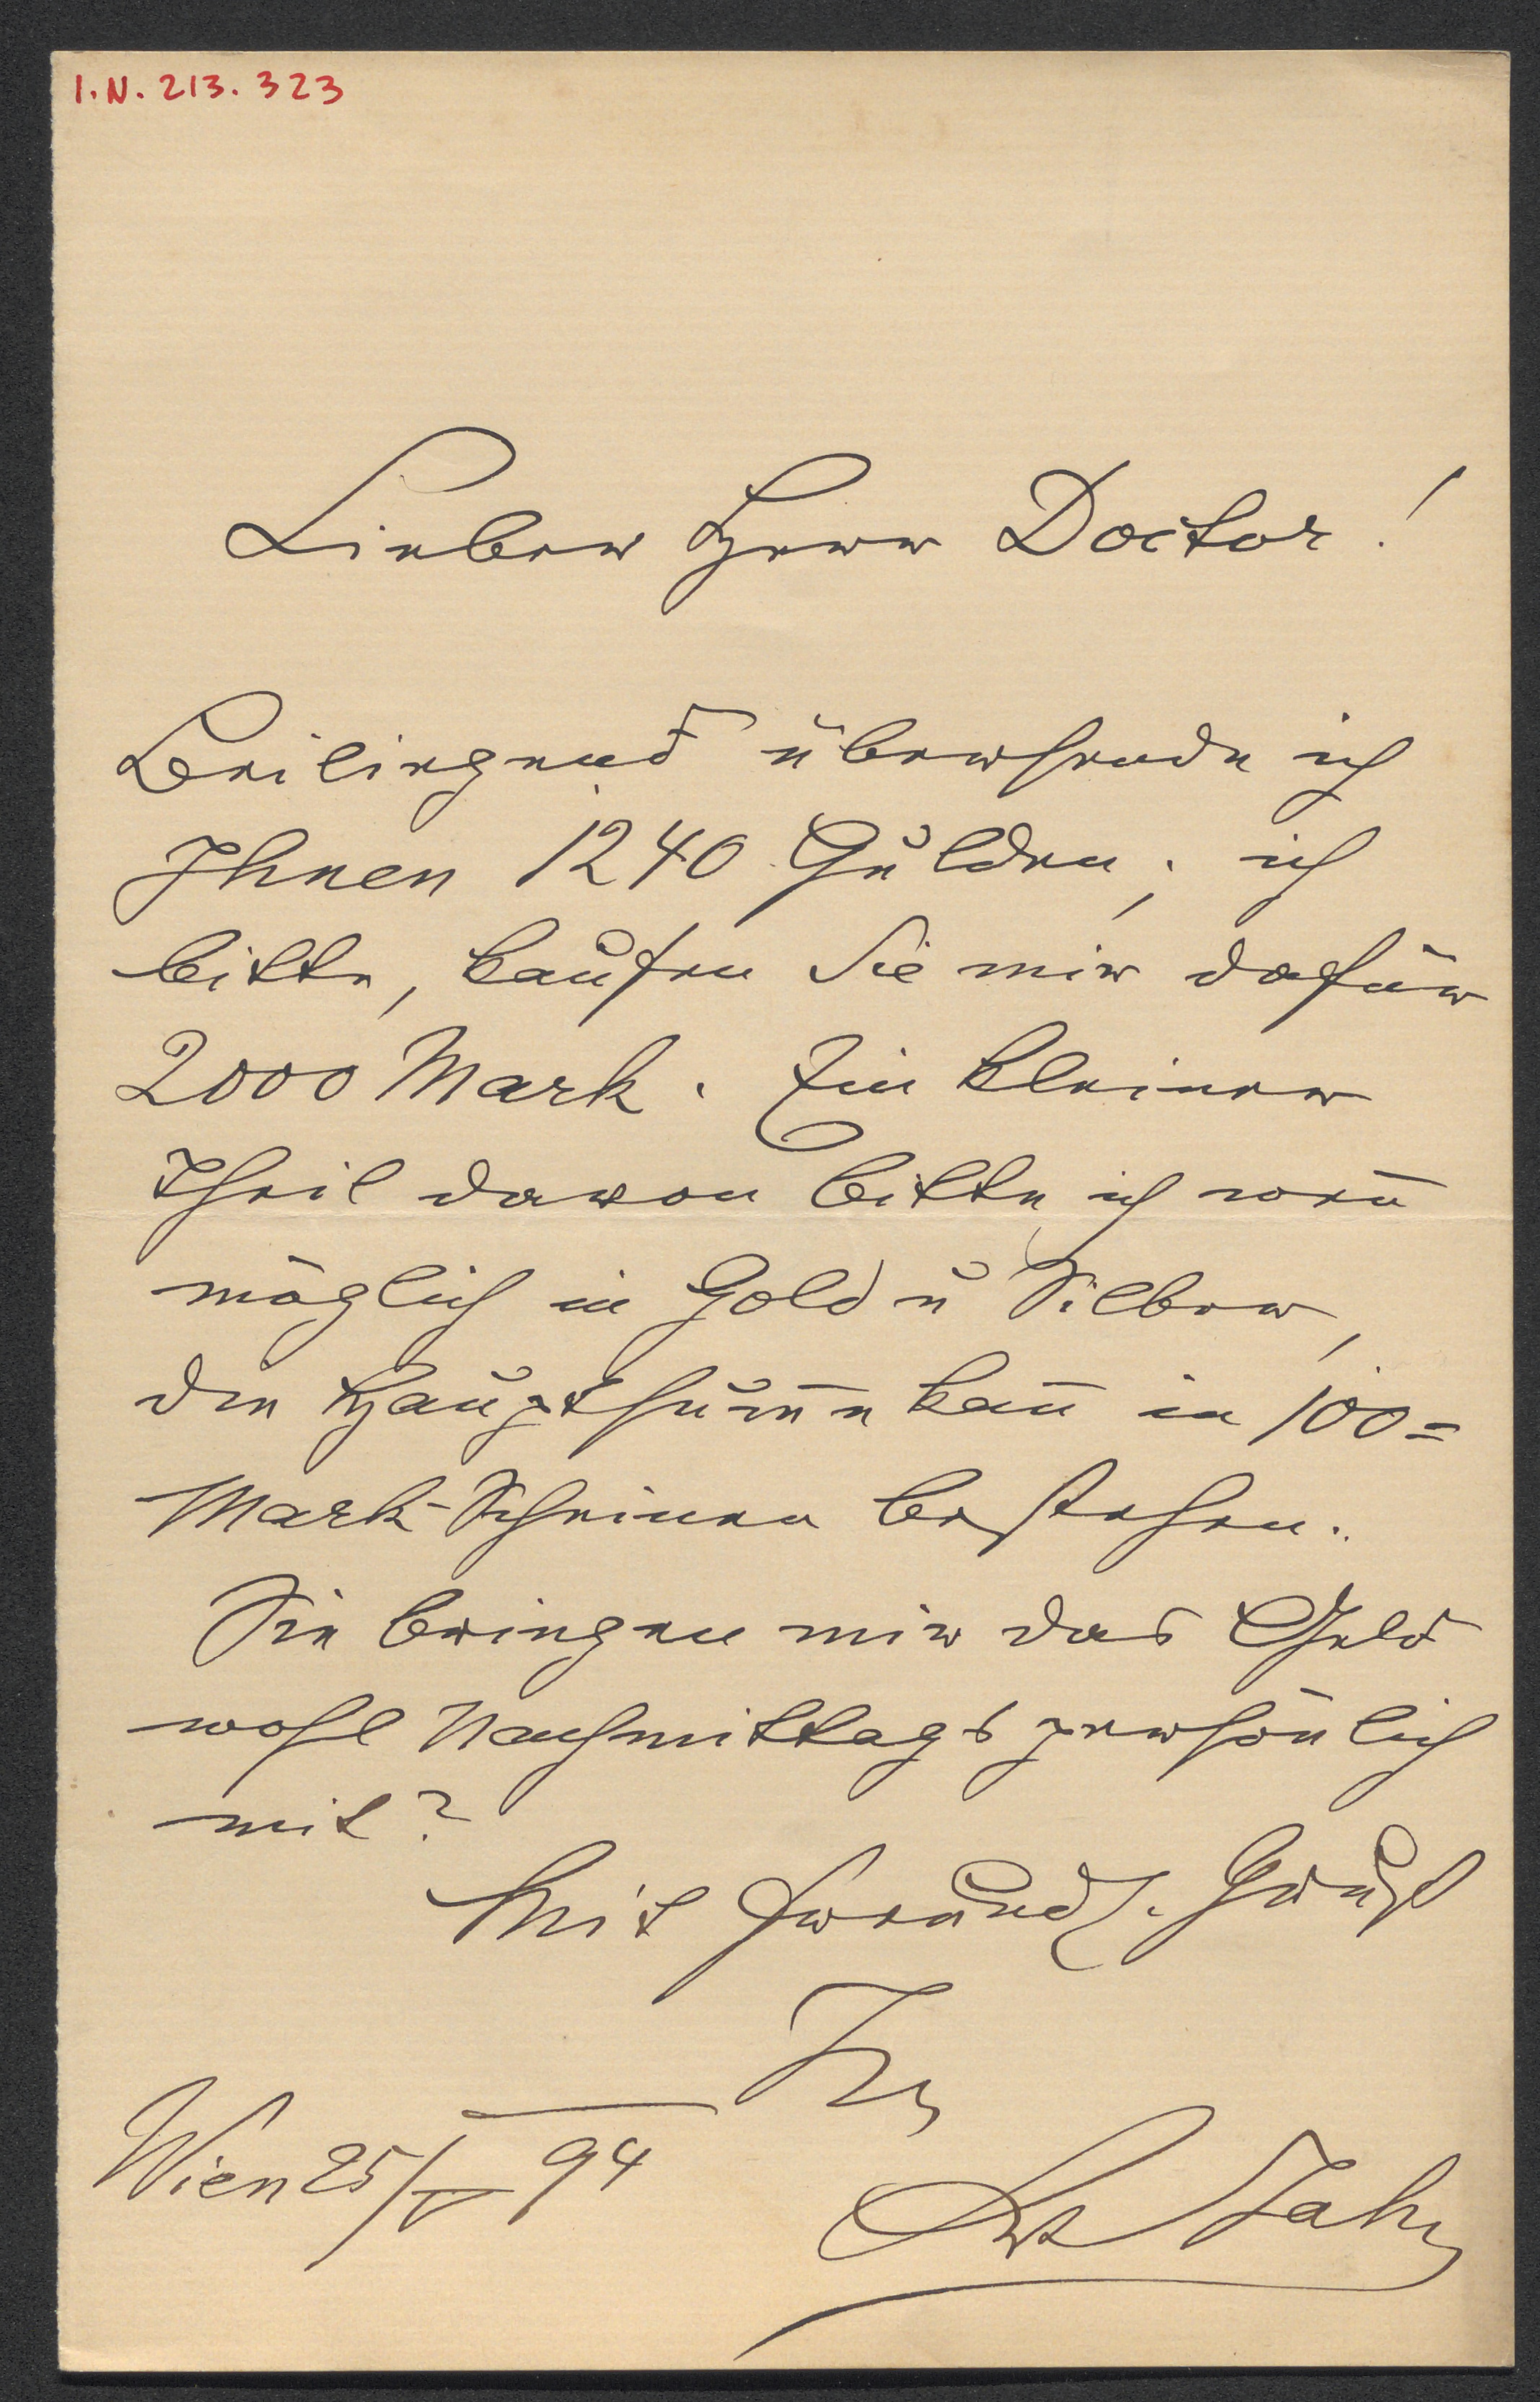 I.N. 213.323
Lieber Herr Doctor!
Beiliegend übersende ich
Ihnen 1240 Gulden; ich
bitte, kaufen Sie mir dafür
2000 Mark. Ein kleiner
Theil davon bitte ich wen̄
möglich in Gold u Silber,
die Hauptsum̄e kan̄ in 100=
Mark-Scheinen bestehen.
Sie bringen mir das Geld
wohl Nachmittags persönlich
mit?
Mit freundl. Gruß
Ihr
Wien 25/V 94
Jahn